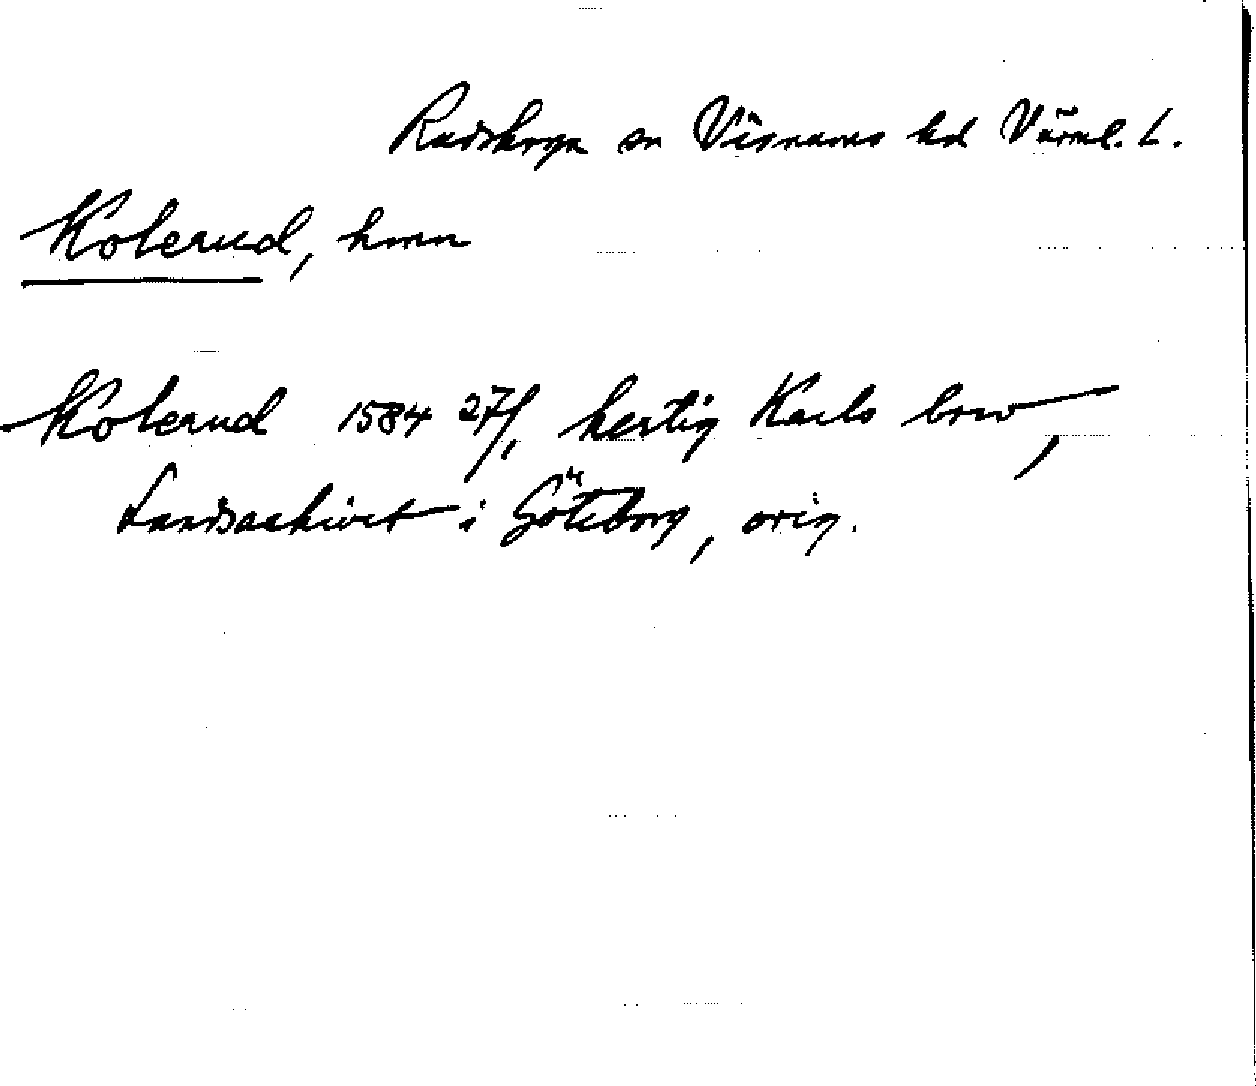 Rudskoga sn Visnums hd Värml. l.
Kolerud, hmn
Kolerud 1584 27/1, hertig Karls brev,
Landsarkivet i Göteborg, orig.